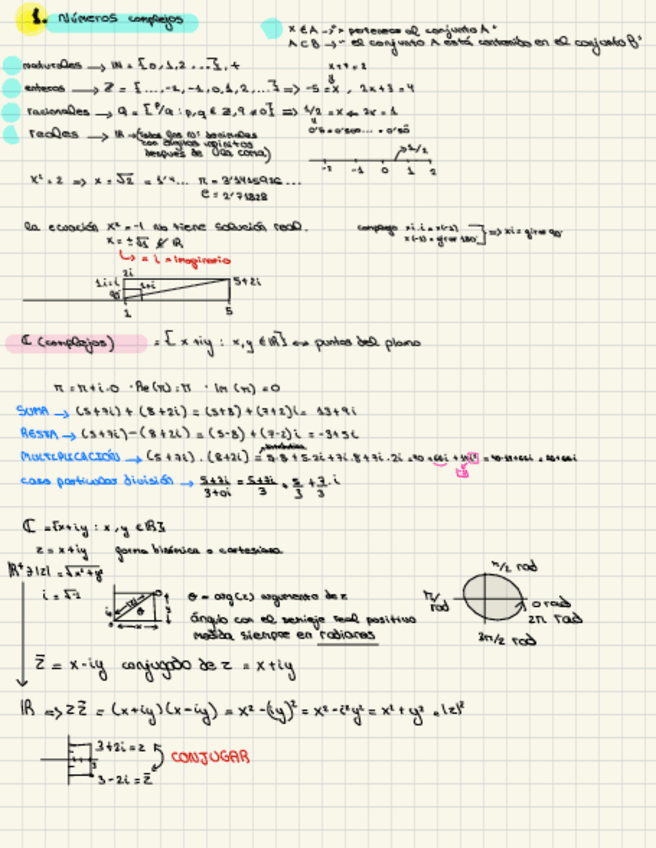 1. Números complejos
x ∈ A → "x pertenece al conjunto A"
A ⊂ B → "el conjunto A está contenido en el conjunto B"
naturales → ℕ = {0,1,2 ...}, +
enteros → Z = {..., -2, -1, 0, 1, 2, ...} => -5 = x , 2x+3 = 4
racionales → Q = {p/q : p,q ∈ Z, q ≠ 0} => 1/2 = x ← 2x = 1
reales → ℝ → (todos los nº decimales
con dígitos infinitos
después de una coma)
1/2
-2 -1 0 1 2
x² = 2 => x = √2 = 1'4... π = 3'1415926...
e = 2'71828
la ecuación x² = -1 no tiene solución real.
x = ±√-1 ∉ ℝ
↳ = i = imaginario
complejo x i . i = x(-1)
x(-1) = giro 180°
=> xi = giro 90°
2i
1i = i 1+i 5+2i
90°
1 5
ℂ (complejos) = {x+iy : x,y ∈ ℝ} ↔ puntos del plano
π = π + i·0 · Re(π) = π · Im(π) = 0
SUMA → (5+7i) + (8+2i) = (5+8) + (7+2)i = 13+9i
RESTA → (5+7i) - (8+2i) = (5-8) + (7-2)i = -3+5i
MULTIPLICACIÓN → (5+7i) . (8+2i) = 5.8 + 5.2i + 7i.8 + 7i.2i = 40 + 66i + 14i² = 40-14+66i = 26+66i
caso particular división → 5+7i/3+0i = 5+7i/3 = 5/3 + 7/3 . i
ℂ = {x+iy : x,y ∈ ℝ}
z = x+iy forma binómica o cartesiana
ℝ⁺ ∋ |z| = √x²+y²
i = √-1
|z| θ
x
θ = arg(z) argumento de z
ángulo con el semieje real positivo
medida siempre en radianes
π/2 rad
π rad
0 rad
2π rad
3π/2 rad
z̄ = x-iy conjugado de z = x+iy
ℝ => z z̄ = (x+iy)(x-iy) = x² - (iy)² = x² - i²y² = x² + y² = |z|²
3+2i = z
CONJUGAR
3-2i = z̄